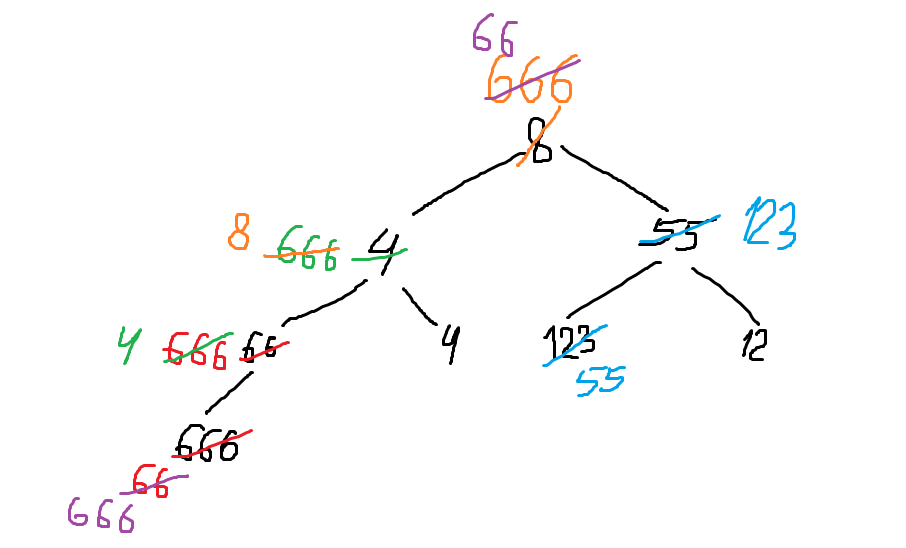 66
666
8
8 666 4 55 123
4 666 66 4 123 12
55
666
66
666